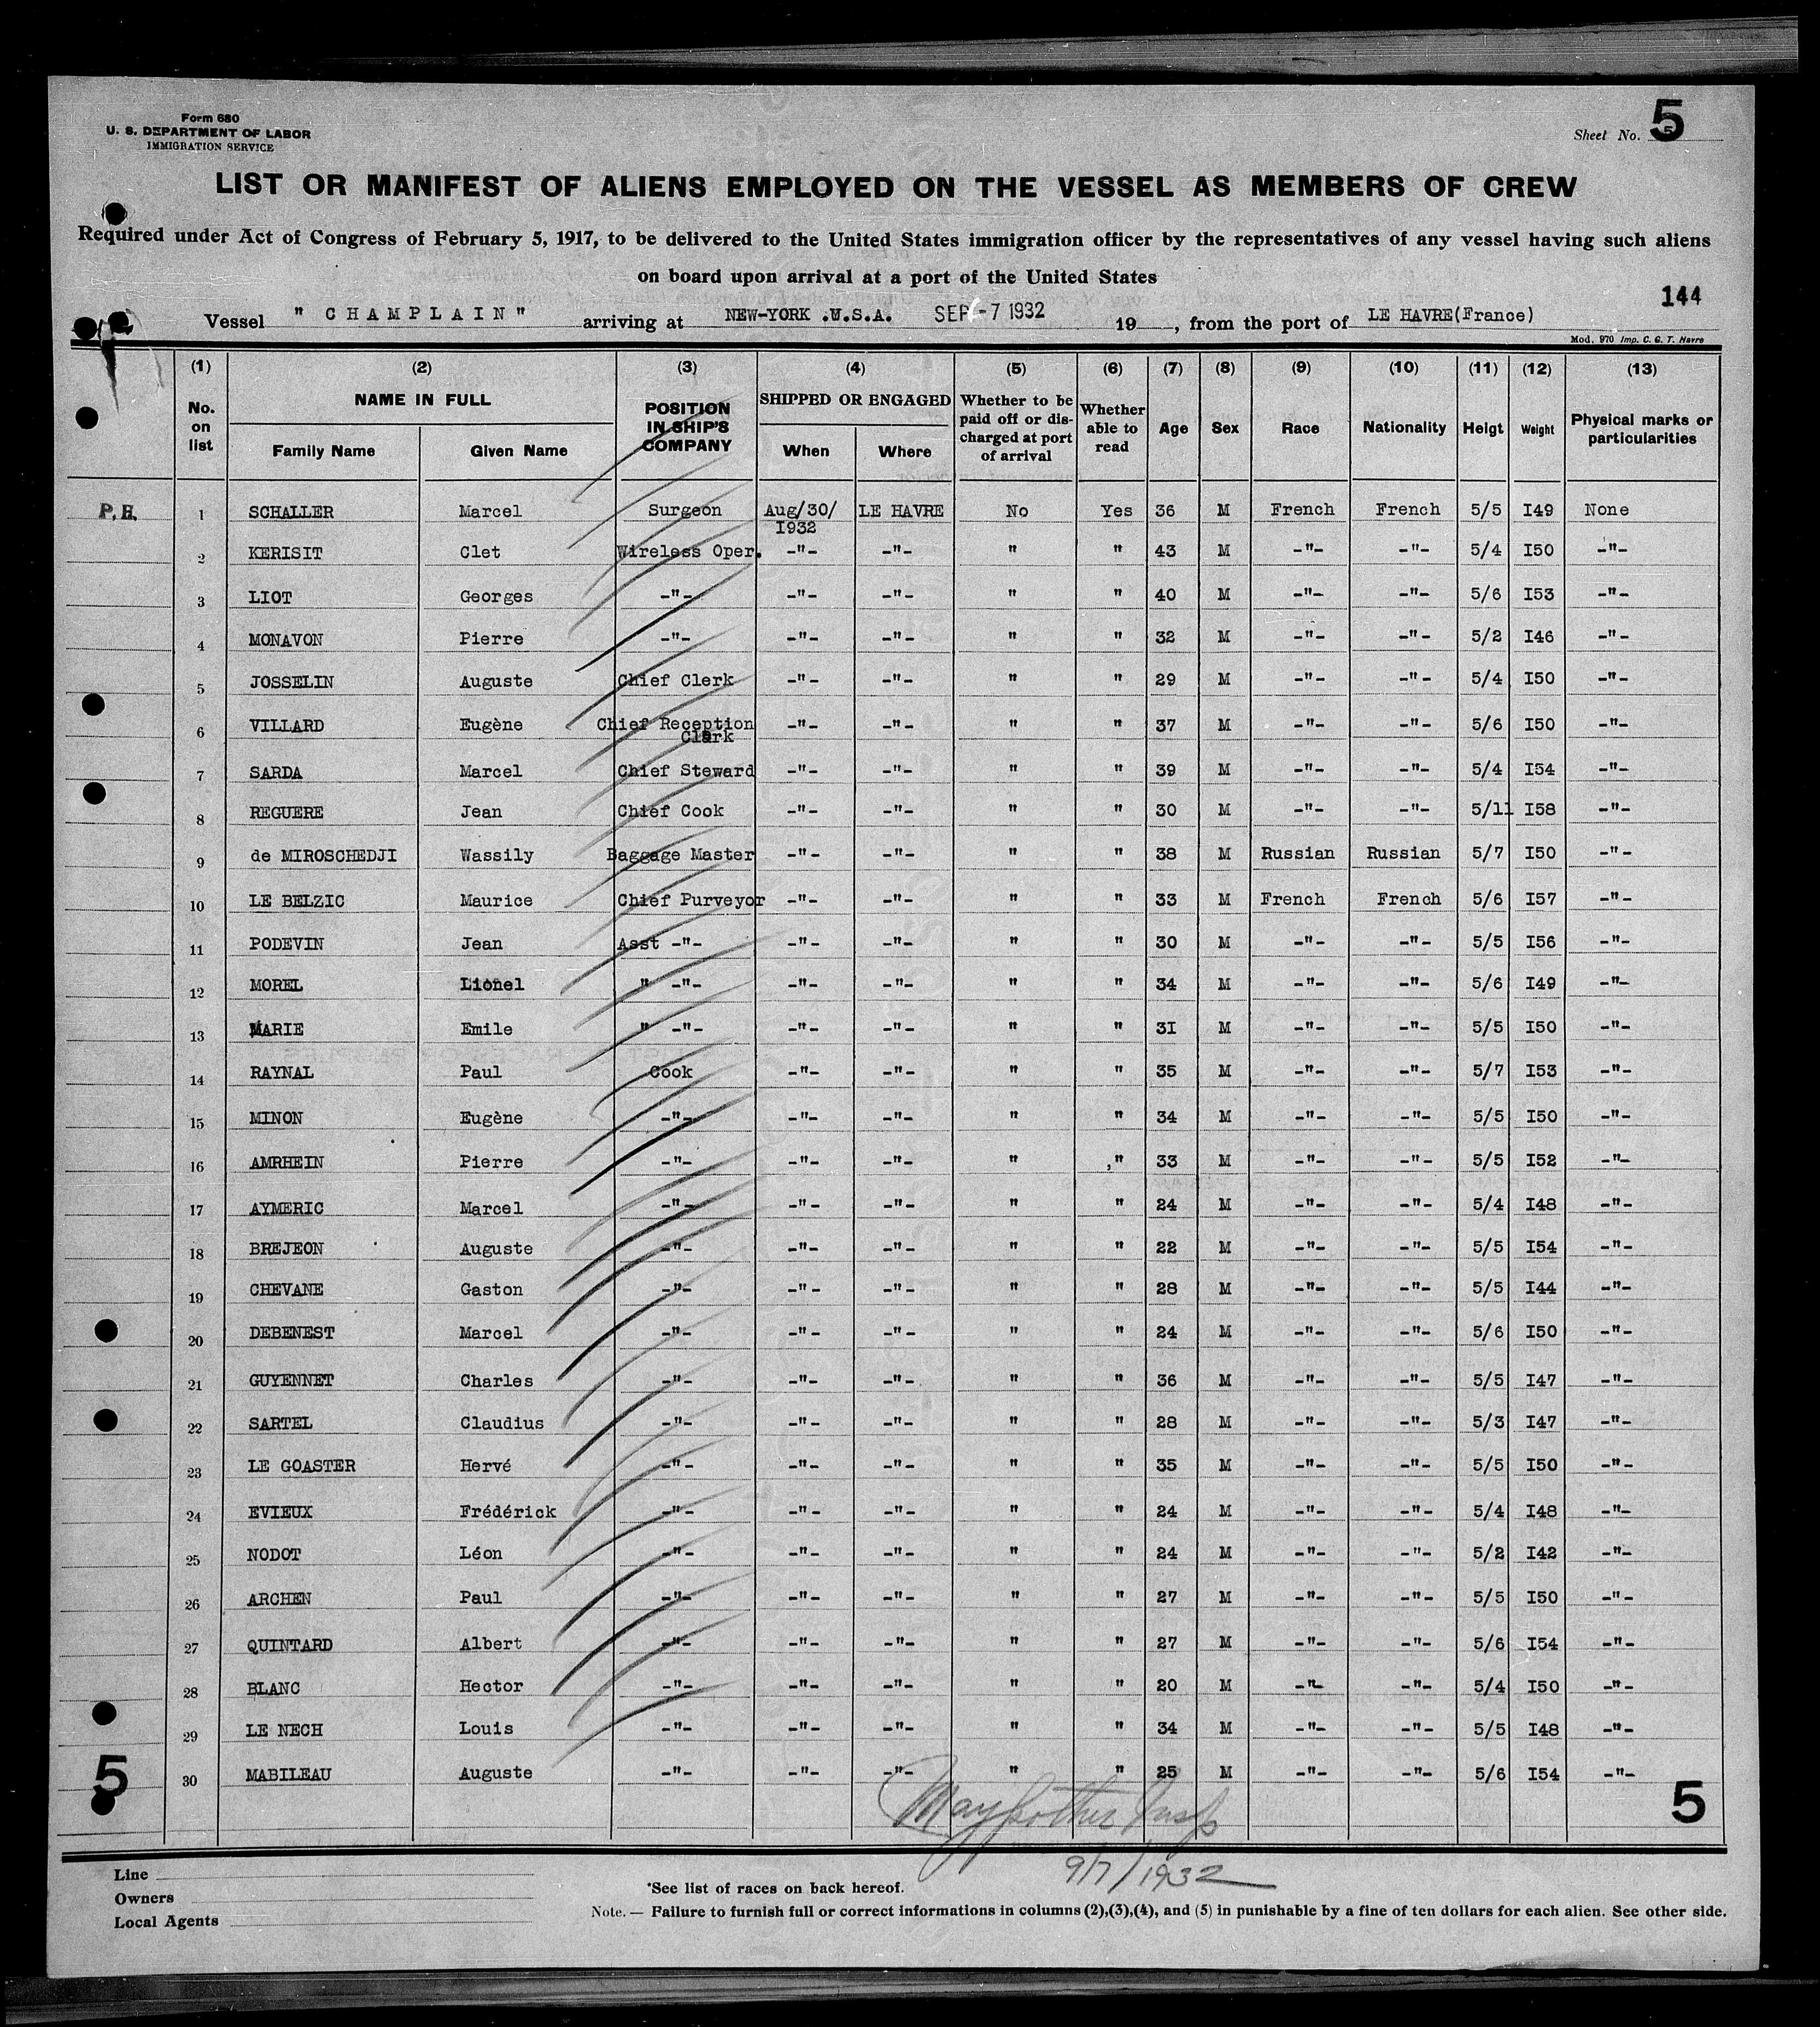 Form 680
U. S. DEPARTMENT OF LABOR
IMMIGRATION SERVICE
Sheet No. 5
5
LIST OR MANIFEST OF ALIENS EMPLOYED ON THE VESSEL AS MEMBERS OF CREW
Required under Act of Congress of February 5, 1917, to be delivered to the United States immigration officer by the representatives of any vessel having such aliens
on board upon arrival at a port of the United States
144
Vessel " CHAMPLAIN" arriving at NEW-YORK .U.S.A. SEP -7 1932 19 , from the port of LE HAVRE(France)
Mod. 970 Imp. C. G. T. Havre
(1) (2) (3) (4) (5) (6) (7) (8) (9) (10) (11) (12) (13)
No. on list NAME IN FULL Family Name Given Name POSITION IN SHIP'S COMPANY SHIPPED OR ENGAGED When Where Whether to be paid off or discharged at port of arrival Whether able to read Age Sex Race Nationality Helgt Weight Physical marks or particularities
P.H. 1 SCHALLER Marcel Surgeon Aug/30/ I932 LE HAVRE No Yes 36 M French French 5/5 I49 None
2 KERISIT Clet Wireless Oper. -"- -"- " " 43 M -"- -"- 5/4 I50 -"-
3 LIOT Georges -"- -"- -"- " " 40 M -"- -"- 5/6 I53 -"-
4 MONAVON Pierre -"- -"- -"- " " 32 M -"- -"- 5/2 I46 -"-
5 JOSSELIN Auguste Chief Clerk -"- -"- " " 29 M -"- -"- 5/4 I50 -"-
6 VILLARD Eugène Chief Reception Clark -"- -"- " " 37 M -"- -"- 5/6 I50 -"-
7 SARDA Marcel Chief Steward -"- -"- " " 39 M -"- -"- 5/4 I54 -"-
8 REGUERE Jean Chief Cook -"- -"- " " 30 M -"- -"- 5/11 I58 -"-
9 de MIROSCHEDJI Wassily Baggage Master -"- -"- " " 38 M Russian Russian 5/7 I50 -"-
10 LE BELZIC Maurice Chief Purveyor -"- -"- " " 33 M French French 5/6 I57 -"-
11 PODEVIN Jean Asst -"- -"- -"- " " 30 M -"- -"- 5/5 I56 -"-
12 MOREL Lionel " -"- -"- -"- " " 34 M -"- -"- 5/6 I49 -"-
13 MARIE Emile " -"- -"- -"- " " 3I M -"- -"- 5/5 I50 -"-
14 RAYNAL Paul Cook -"- -"- " " 35 M -"- -"- 5/7 I53 -"-
15 MINON Eugène -"- -"- -"- " " 34 M -"- -"- 5/5 I50 -"-
16 AMRHEIN Pierre -"- -"- -"- " ," 33 M -"- -"- 5/5 I52 -"-
17 AYMERIC Marcel -"- -"- -"- " " 24 M -"- -"- 5/4 I48 -"-
18 BREJEON Auguste -"- -"- -"- " " 22 M -"- -"- 5/5 I54 -"-
19 CHEVANE Gaston -"- -"- -"- " " 28 M -"- -"- 5/5 I44 -"-
20 DEBENEST Marcel -"- -"- -"- " " 24 M -"- -"- 5/6 I50 -"-
21 GUYENNET Charles -"- -"- -"- " " 36 M -"- -"- 5/5 I47 -"-
22 SARTEL Claudius -"- -"- -"- " " 28 M -"- -"- 5/3 I47 -"-
23 LE GOASTER Hervé -"- -"- -"- " " 35 M -"- -"- 5/5 I50 -"-
24 EVIEUX Frédérick -"- -"- -"- " " 24 M -"- -"- 5/4 I48 -"-
25 NODOT Léon -"- -"- -"- " " 24 M -"- -"- 5/2 I42 -"-
26 ARCHEN Paul -"- -"- -"- " " 27 M -"- -"- 5/5 I50 -"-
27 QUINTARD Albert -"- -"- -"- " " 27 M -"- -"- 5/6 I54 -"-
28 BLANC Hector -"- -"- -"- " " 20 M -"- -"- 5/4 I50 -"-
29 LE NECH Louis -"- -"- -"- " " 34 M -"- -"- 5/5 I48 -"-
30 MABILEAU Auguste -"- -"- -"- " " 25 M -"- -"- 5/6 I54 -"-
5 5
Insp
9/7/1932
Line
Owners
Local Agents
*See list of races on back hereof.
Note. — Failure to furnish full or correct informations in columns (2),(3),(4), and (5) in punishable by a fine of ten dollars for each alien. See other side.